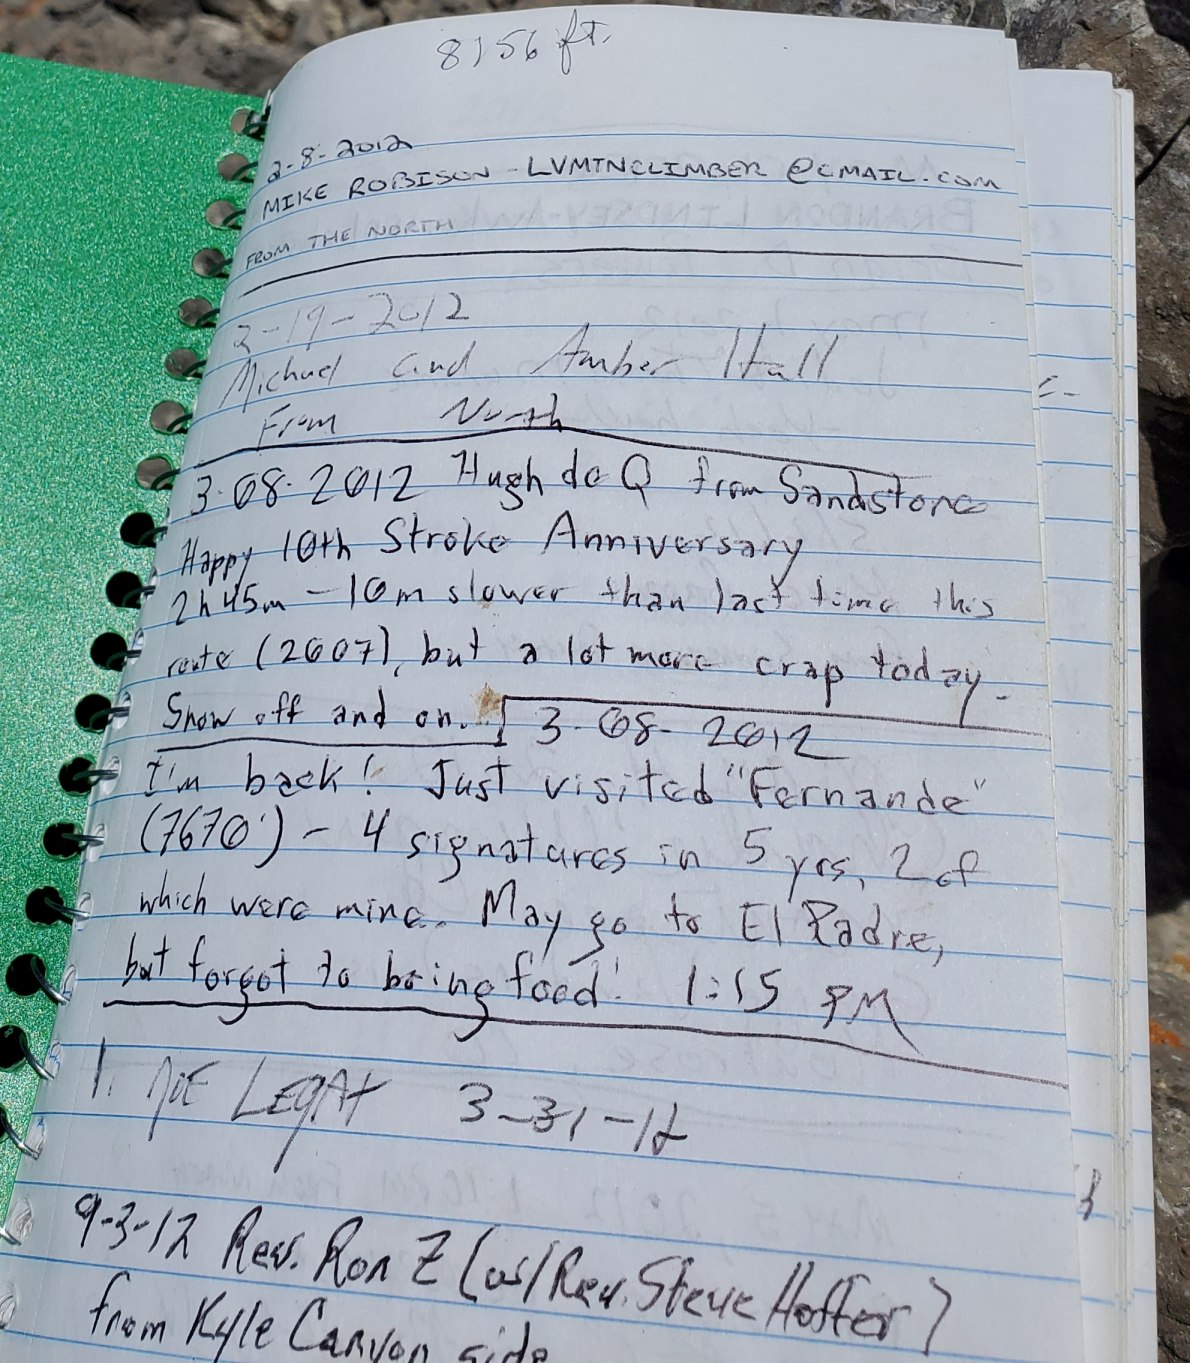 8156 ft.
2-8-2012
MIKE ROBISON - LVMTNCLIMBER @GMAIL.COM
FROM THE NORTH
2-19-2012
Michael and Amber Hall
From North
3.08.2012 Hugh de Q from Sandstone
Happy 10th Stroke Anniversary
2h45m - 10m slower than last time this
route (2007), but a lot more crap today.
Snow off and on.
3-08-2012
I'm back! Just visited "Fernande"
(7670') - 4 signatures in 5 yrs, 2 of
which were mine. May go to El Padre,
but forgot to bring food! 1:15 PM
3-31-12
9-3-12 Rev. Ron Z (w/ Rev. Steve Hoffer)
from Kyle Canyon side